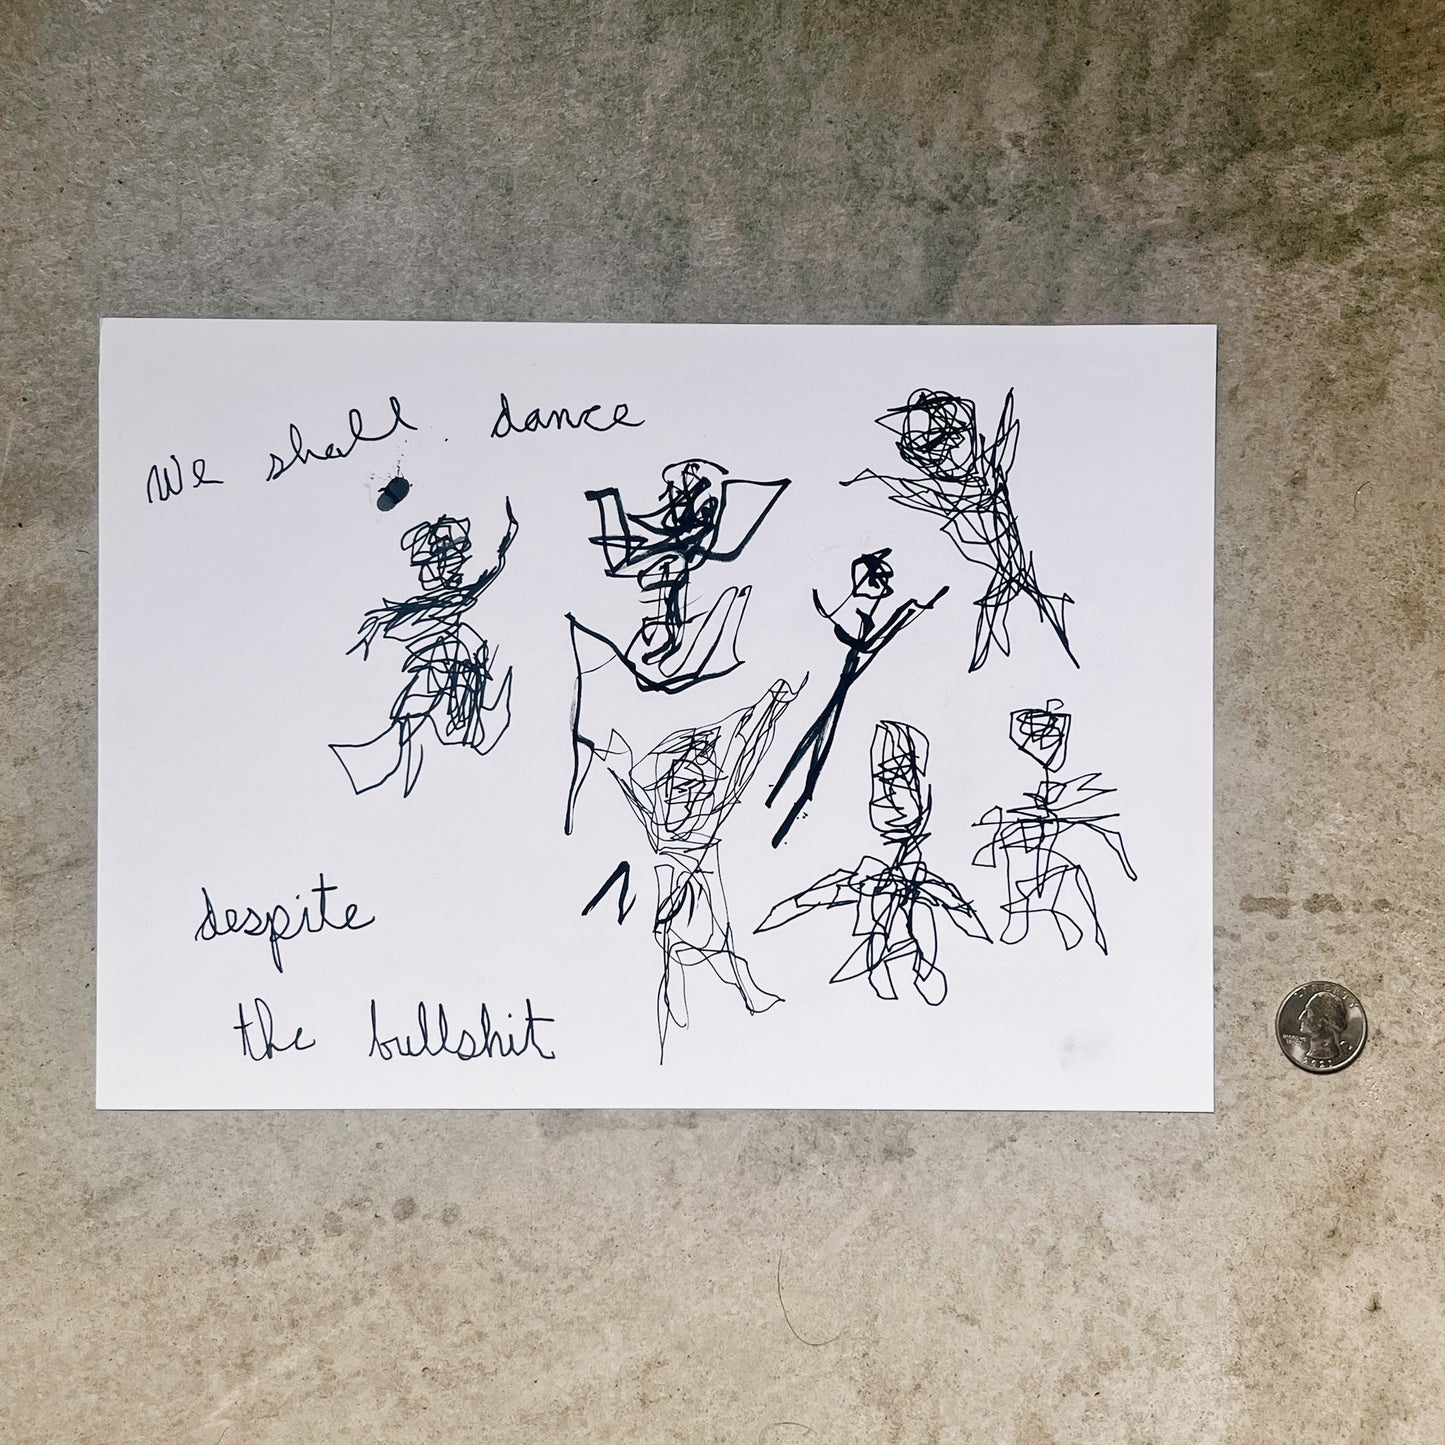 We shall dance
despite
the bullshit
LIBERTY